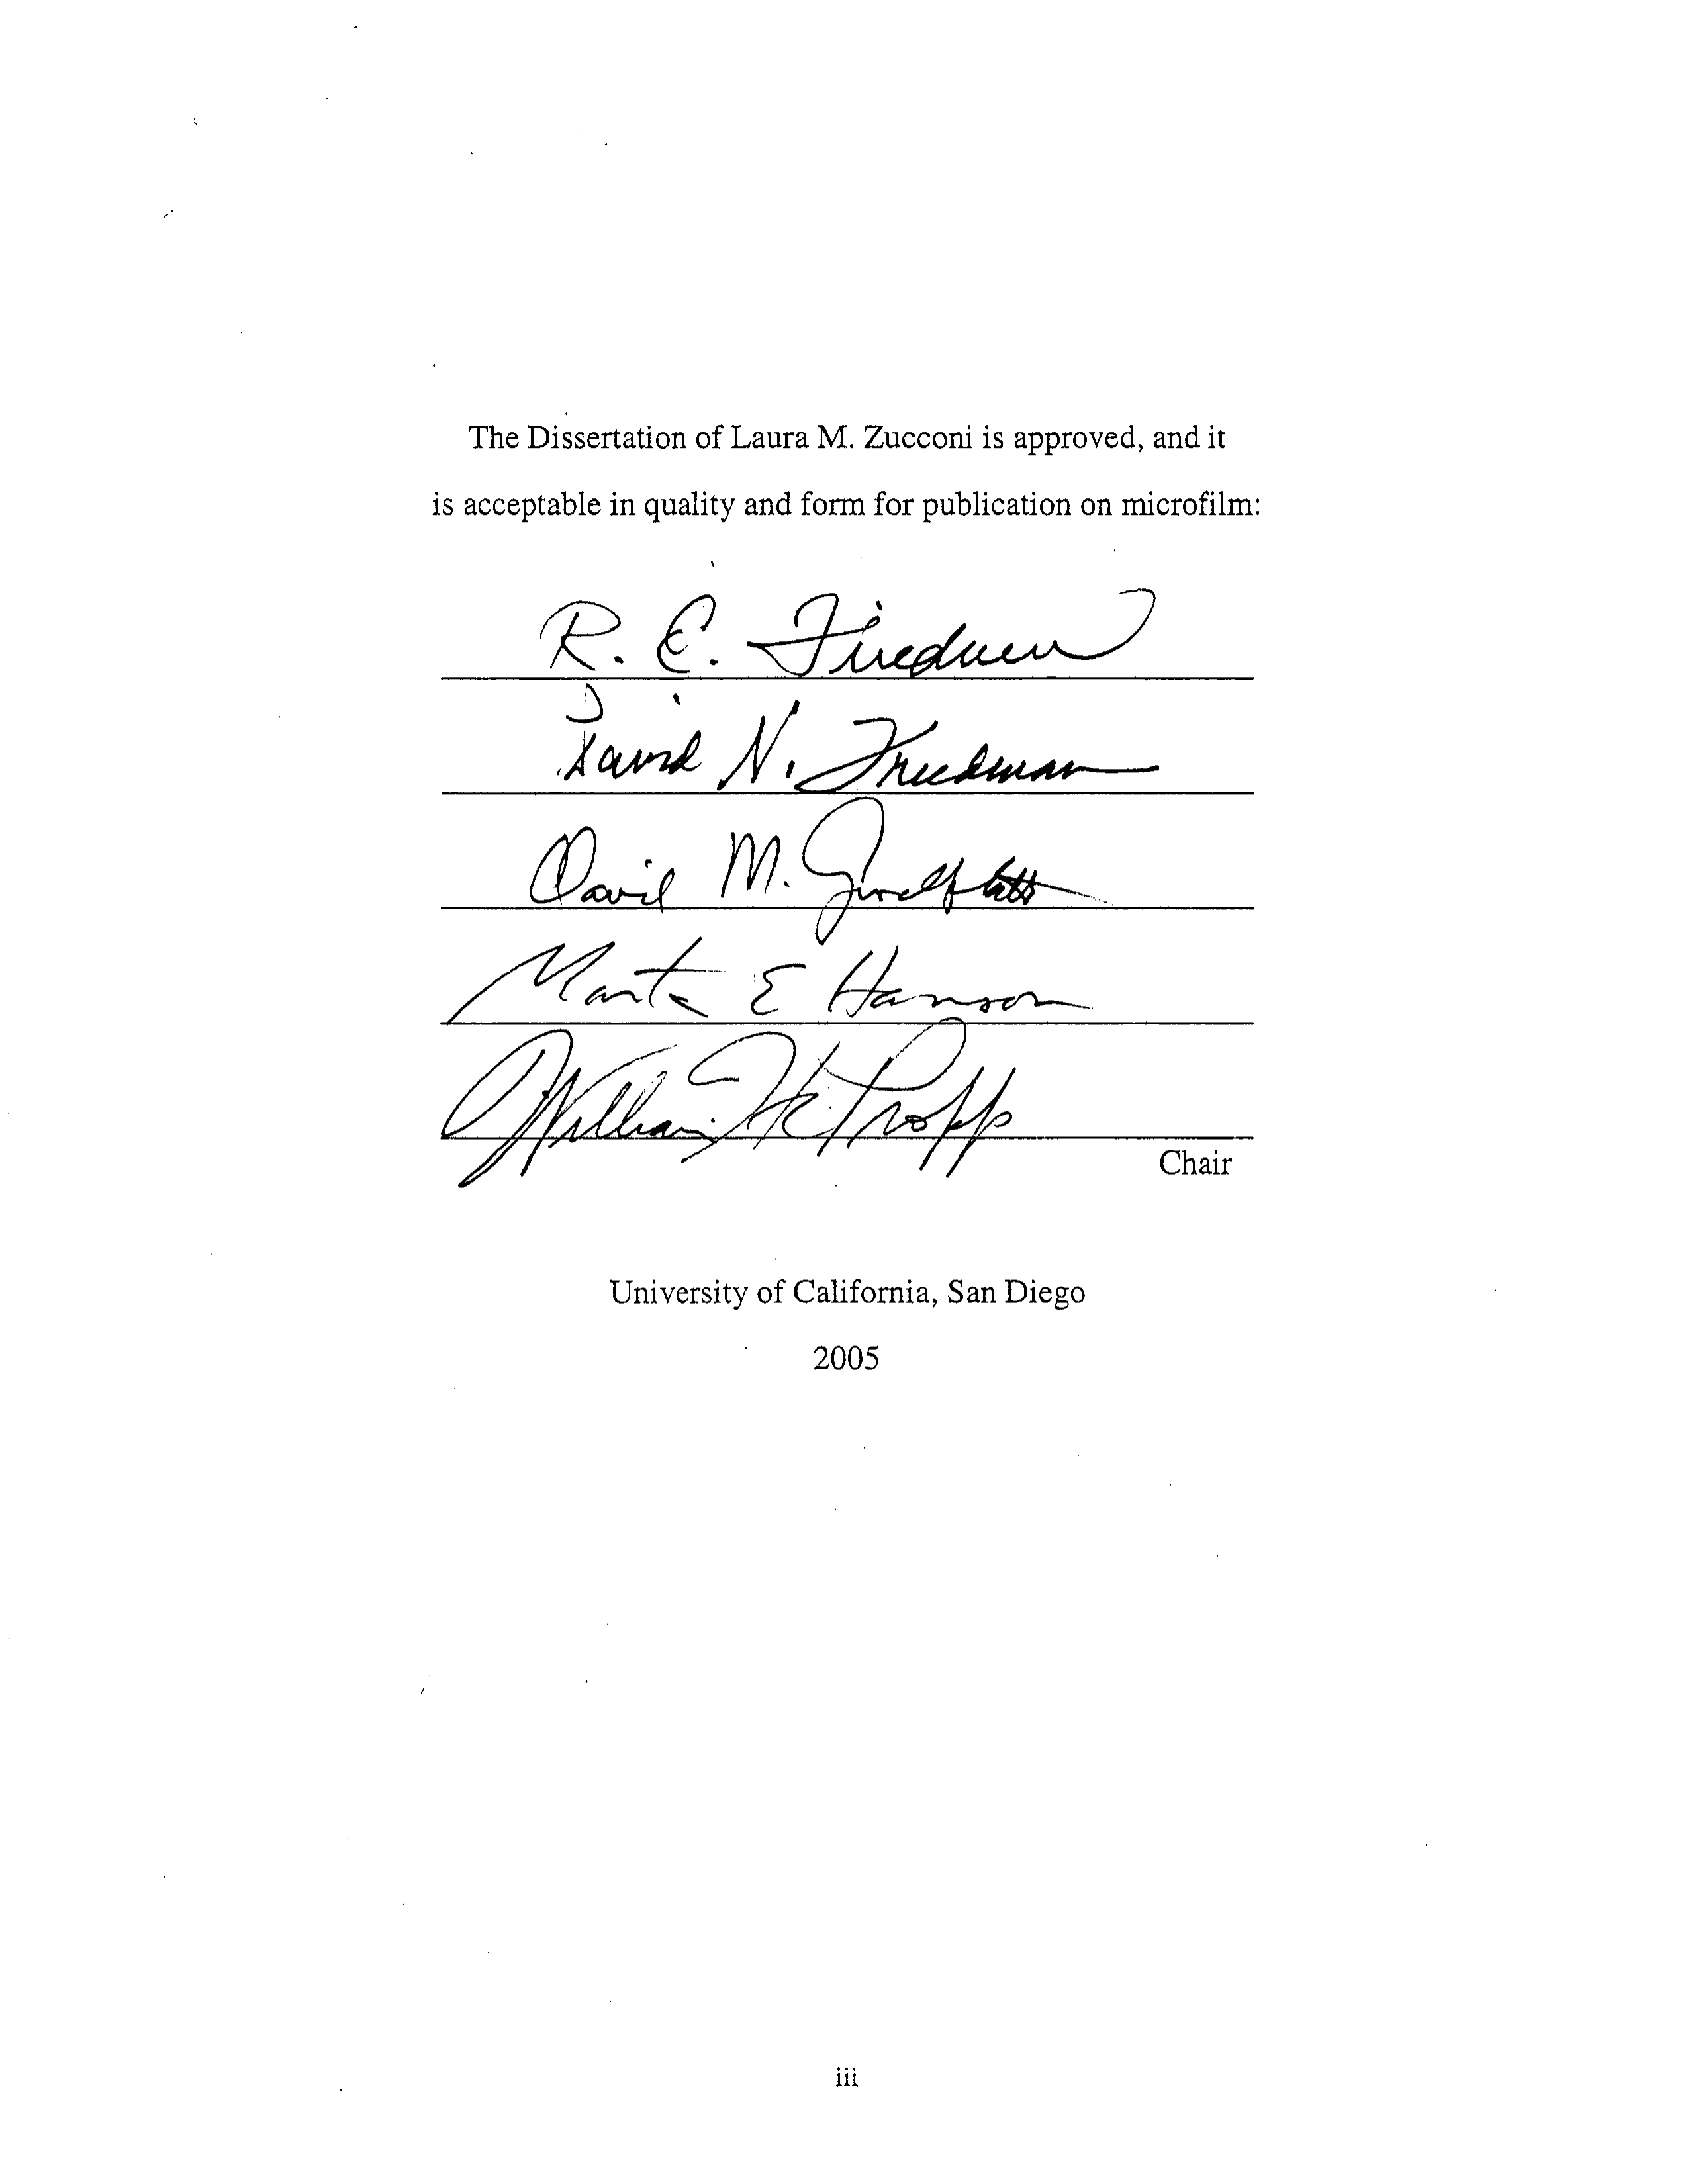 The Dissertation of Laura M. Zucconi is approved, and it
is acceptable in quality and form for publication on microfilm:
R. E. Friedman
David N. Freedman
David M. Goodblatt
Marta E Hanson
William H. Propp
Chair
University of California, San Diego
2005
iii